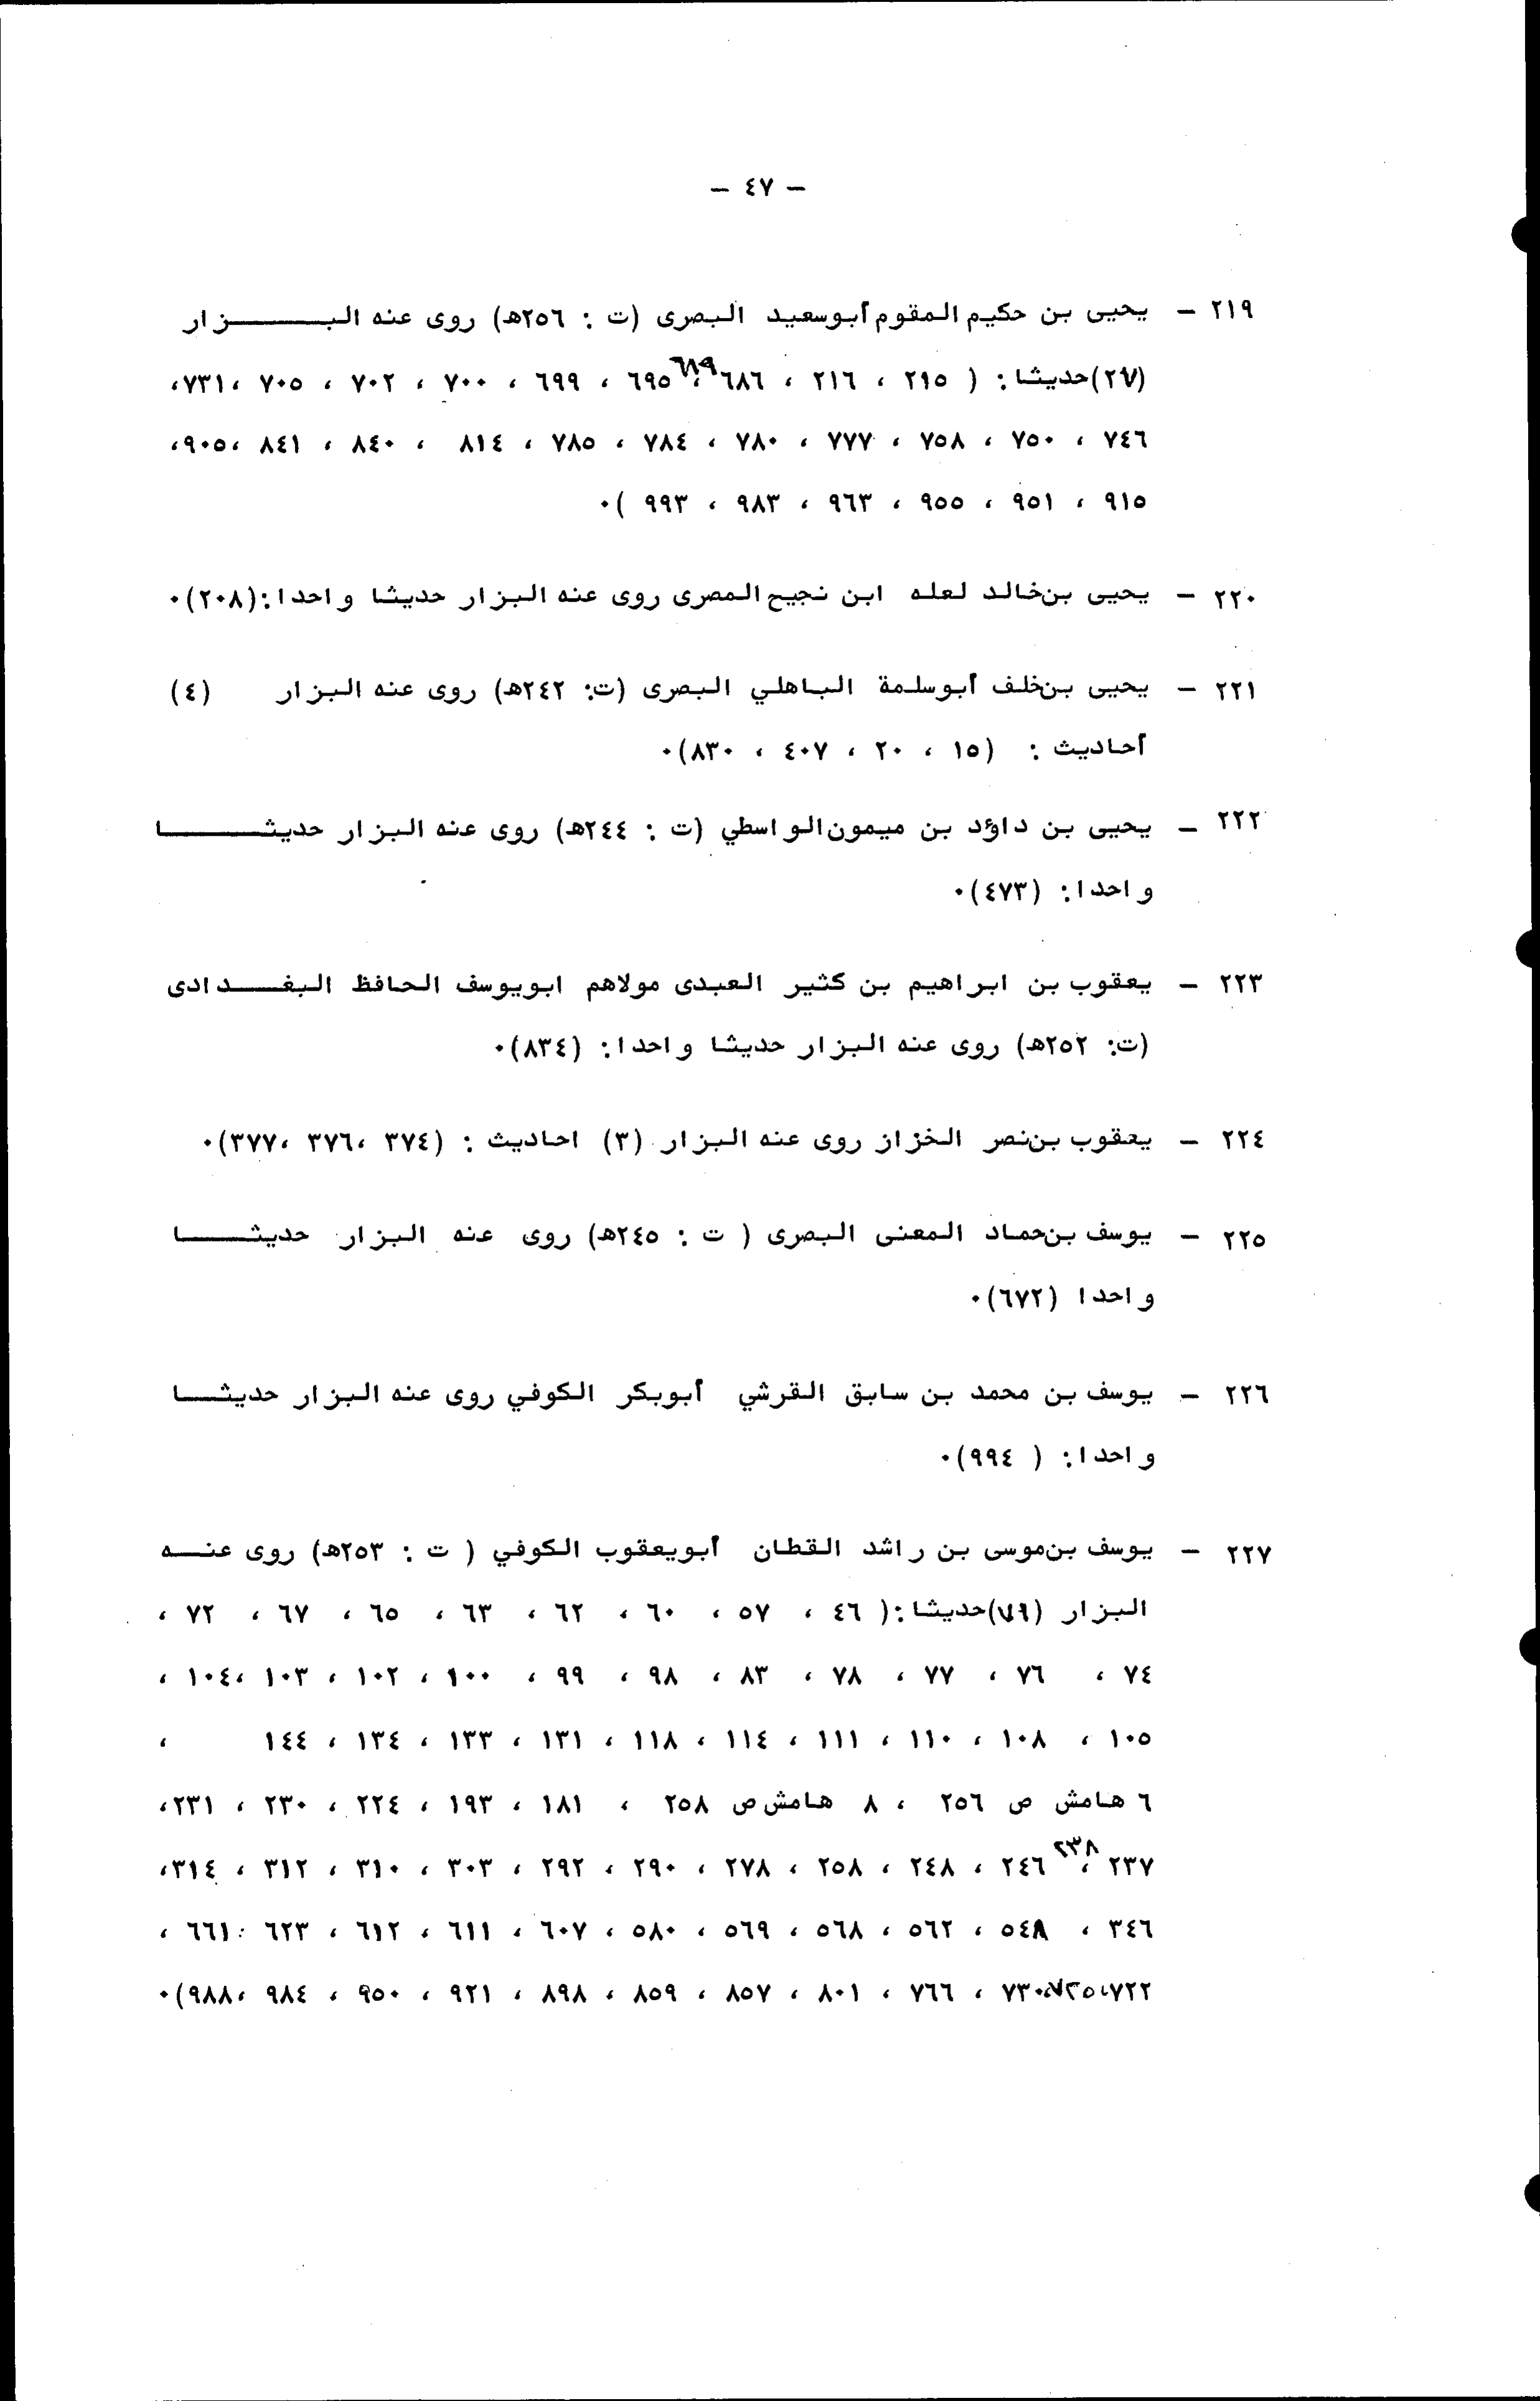 - ٤٧ -
٢١٩ - يحيى بن حكيم المقوم أبوسعيد البصرى (ت : ٢٥٦هـ) روى عنه البزار
(٢٧)حديثا: ( ٢١٥ ، ٢١٦ ، ٦٨٦ ، ٦٨٩ ٦٩٥ ، ٦٩٩ ، ٧٠٠ ، ٧٠٢ ، ٧٠٥ ،٧٣١،
٧٤٦ ، ٧٥٠ ، ٧٥٨ ، ٧٧٧ ، ٧٨٠ ، ٧٨٤ ، ٧٨٥ ، ٨١٤ ، ٨٤٠ ، ٨٤١ ،٩٠٥،
٩١٥ ، ٩٥١ ، ٩٥٥ ، ٩٦٣ ، ٩٨٣ ، ٩٩٣ )٠
٢٢٠ - يحيى بن خالد لعله ابن نجيح المصرى روى عنه البزار حديثا واحدا:(٢٠٨)٠
٢٢١ - يحيى بن خلف أبوسلمة الباهلي البصرى (ت: ٢٤٢هـ) روى عنه البزار (٤)
أحاديث : (١٥ ، ٢٠ ، ٤٠٧ ، ٨٣٠)٠
٢٢٢ - يحيى بن داؤد بن ميمون الواسطي (ت : ٢٤٤هـ) روى عنه البزار حديثا
واحدا: (٤٧٣)٠
٢٢٣ - يعقوب بن ابراهيم بن كثير العبدى مولاهم ابويوسف الحافظ البغدادى
(ت: ٢٥٢هـ) روى عنه البزار حديثا واحدا: (٨٣٤)٠
٢٢٤ - يعقوب بن نصر الخزاز روى عنه البزار (٣) احاديث : (٣٧٤ ،٣٧٦ ،٣٧٧)٠
٢٢٥ - يوسف بن حماد المعنى البصرى ( ت : ٢٤٥هـ) روى عنه البزار حديثا
واحدا (٦٧٢)٠
٢٢٦ - يوسف بن محمد بن سابق القرشي أبوبكر الكوفي روى عنه البزار حديثا
واحدا: ( ٩٩٤)٠
٢٢٧ - يوسف بن موسى بن راشد القطان أبويعقوب الكوفي ( ت : ٢٥٣هـ) روى عنه
البزار حديثا:( ٤٦ ، ٥٧ ، ٦٠ ، ٦٢ ، ٦٣ ، ٦٥ ، ٦٧ ، ٧٢ ،
٧٤ ، ٧٦ ، ٧٧ ، ٧٨ ، ٨٣ ، ٩٨ ، ٩٩ ، ١٠٠ ، ١٠٢ ، ١٠٣ ،١٠٤ ،
١٠٥ ، ١٠٨ ، ١١٠ ، ١١١ ، ١١٤ ، ١١٨ ، ١٣١ ، ١٣٣ ، ١٣٤ ، ١٤٤ ،
٦ هامش ص ٢٥٦ ، ٨ هامش ص ٢٥٨ ، ١٨١ ، ١٩٣ ، ٢٢٤ ، ٢٣٠ ، ٢٣١،
٢٣٧ ، ٢٣٨ ٢٤٦ ، ٢٤٨ ، ٢٥٨ ، ٢٧٨ ، ٢٩٠ ، ٢٩٢ ، ٣٠٣ ، ٣١٠ ، ٣١٢ ، ٣١٤،
٣٤٦ ، ٥٤٨ ، ٥٦٢ ، ٥٦٨ ، ٥٦٩ ، ٥٨٠ ، ٦٠٧ ، ٦١١ ، ٦١٢ ، ٦٢٣ ، ٦٦١ ،
٧٢٢،٧٢٥،٧٣٠ ، ٧٦٦ ، ٨٠١ ، ٨٥٧ ، ٨٥٩ ، ٨٩٨ ، ٩٢١ ، ٩٥٠ ، ٩٨٤ ،٩٨٨)٠